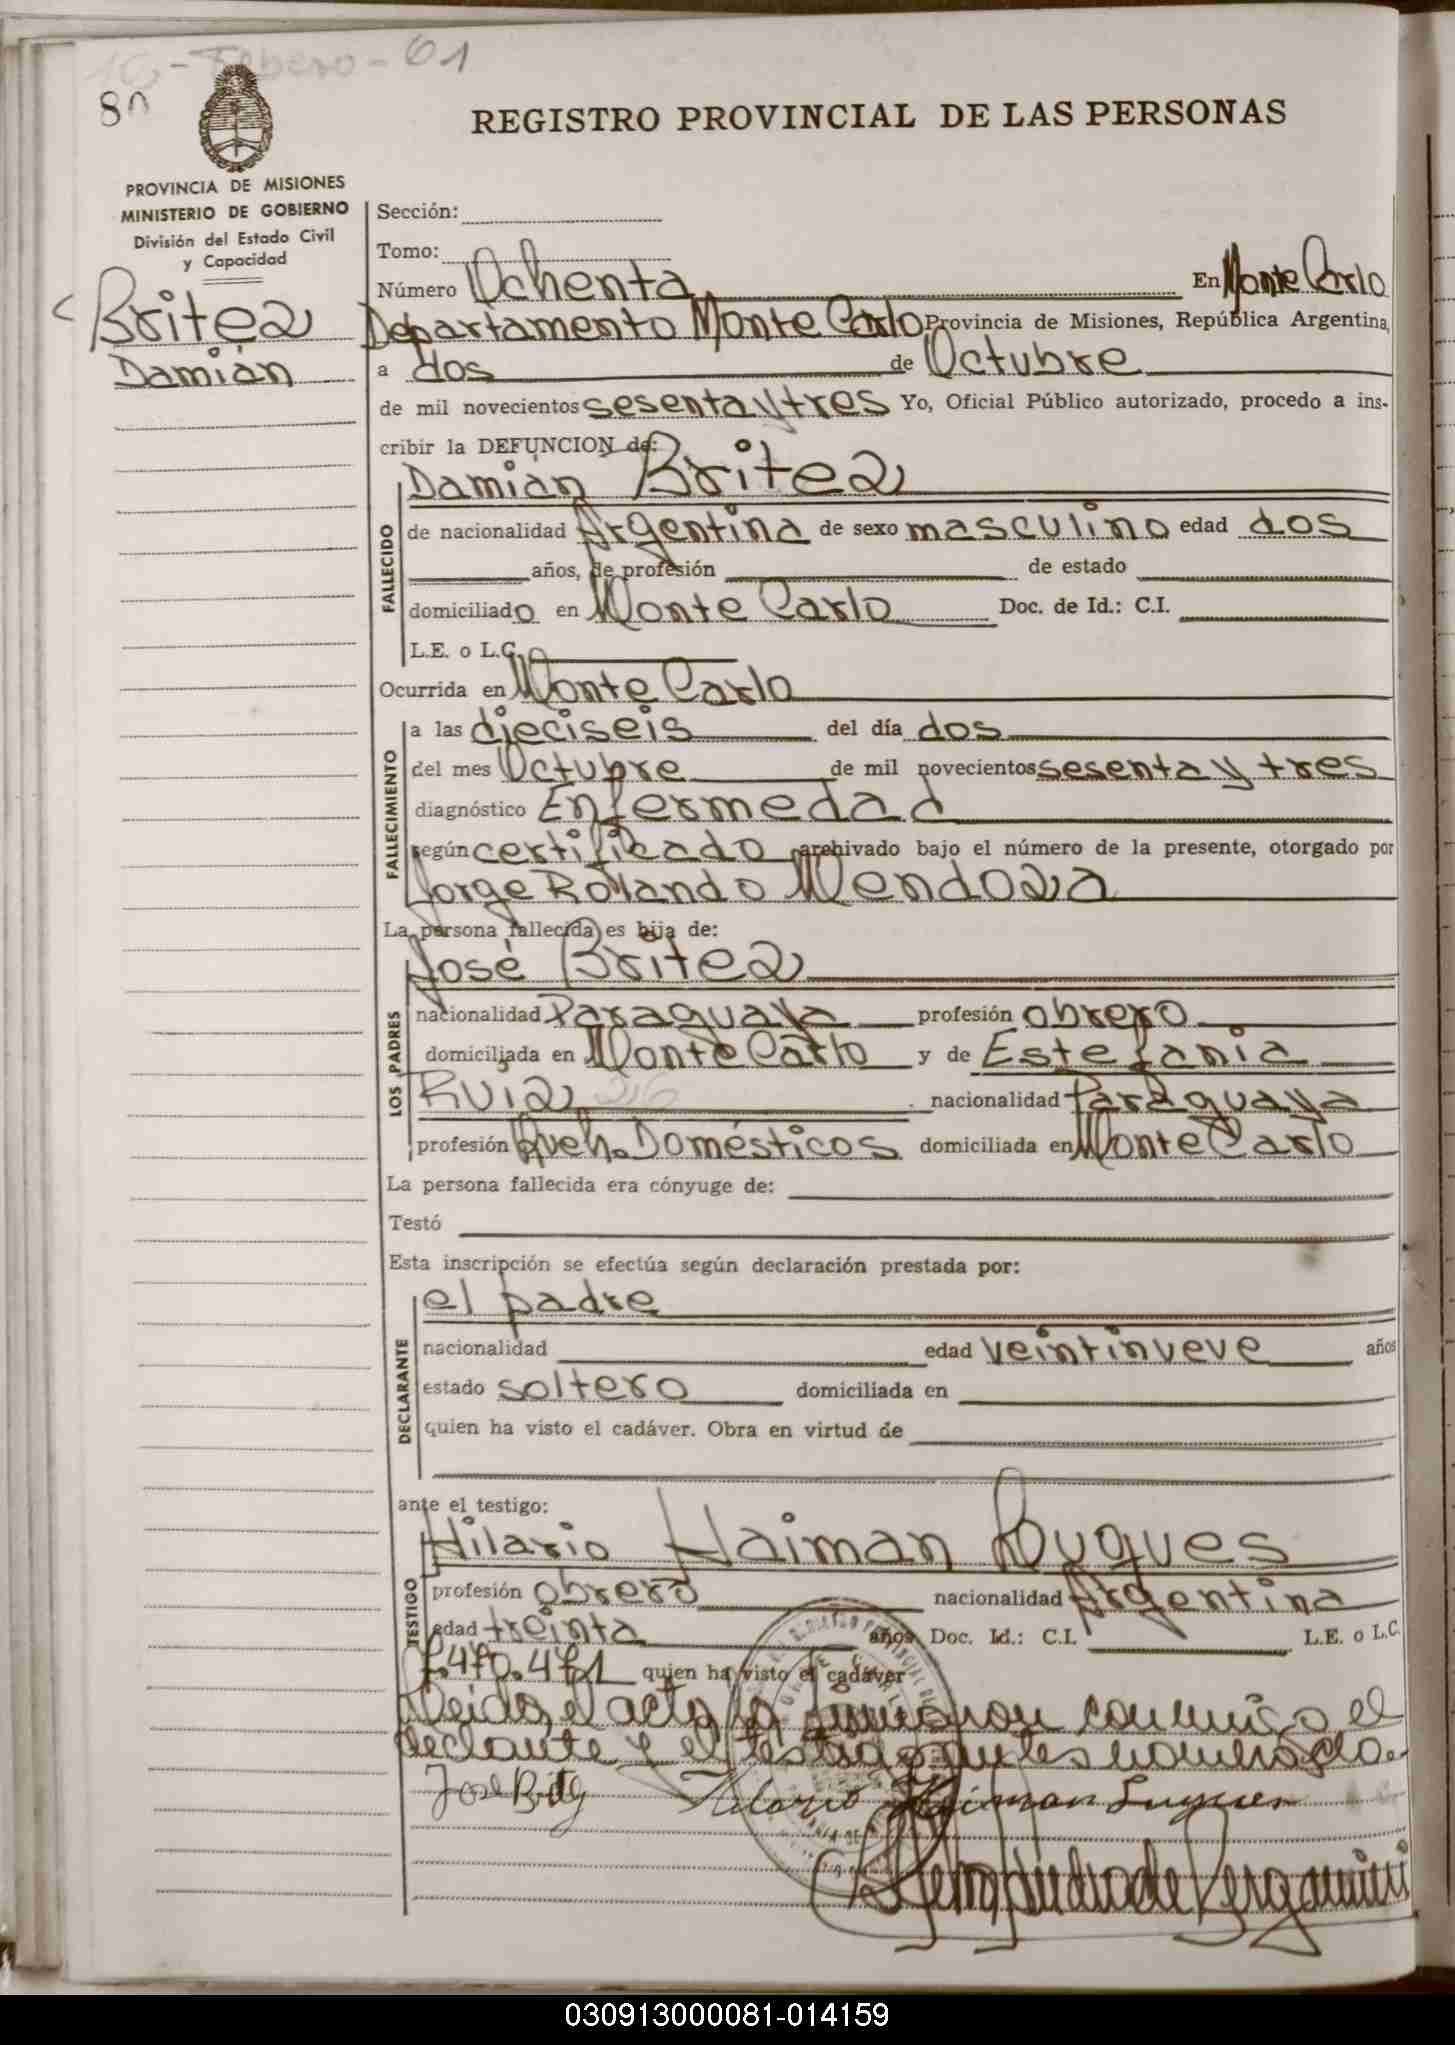 10-Febero-61
80
REGISTRO PROVINCIAL DE LAS PERSONAS
PROVINCIA DE MISIONES
MINISTERIO DE GOBIERNO
División del Estado Civil
y Capacidad
Britez
Damián
Sección:
Tomo:
Número Ochenta En Monte Carlo
Departamento Monte Carlo Provincia de Misiones, República Argentina,
a dos de Octubre
de mil novecientos sesenta y tres Yo, Oficial Público autorizado, procedo a ins-
cribir la DEFUNCION de:
Damián Britez
FALLECIDO
de nacionalidad Argentina de sexo masculino edad dos
años, de profesión de estado
domiciliado en Monte Carlo Doc. de Id.: C.I.
L.E. o L.C.
Ocurrida en Monte Carlo
FALLECIMIENTO
a las dieciseis del día dos
del mes Octubre de mil novecientos sesenta y tres
diagnóstico Enfermedad
según certificado archivado bajo el número de la presente, otorgado por
Jorge Rolando Mendoza
La persona fallecida es hija de:
José Britez
LOS PADRES
nacionalidad Paraguaya profesión obrero
domiciliada en Monte Carlo y de Estefania
Ruiz 26 nacionalidad Paraguaya
profesión Queh. Domésticos domiciliada en Monte Carlo
La persona fallecida era cónyuge de:
Testó
Esta inscripción se efectúa según declaración prestada por:
el padre
DECLARANTE
nacionalidad edad veintinueve años
estado soltero domiciliada en
quien ha visto el cadáver. Obra en virtud de
ante el testigo:
Hilario Haiman Luques
TESTIGO
profesión obrero nacionalidad Argentina
edad treinta años, Doc. Id.: C.I. L.E. o L.C.
7.470.471 quien ha visto el cadáver
Leida el acta la firmaron conmigo el
declante y el testigo antes nombrado.
José Britez Hilario Haiman Luques
030913000081-014159